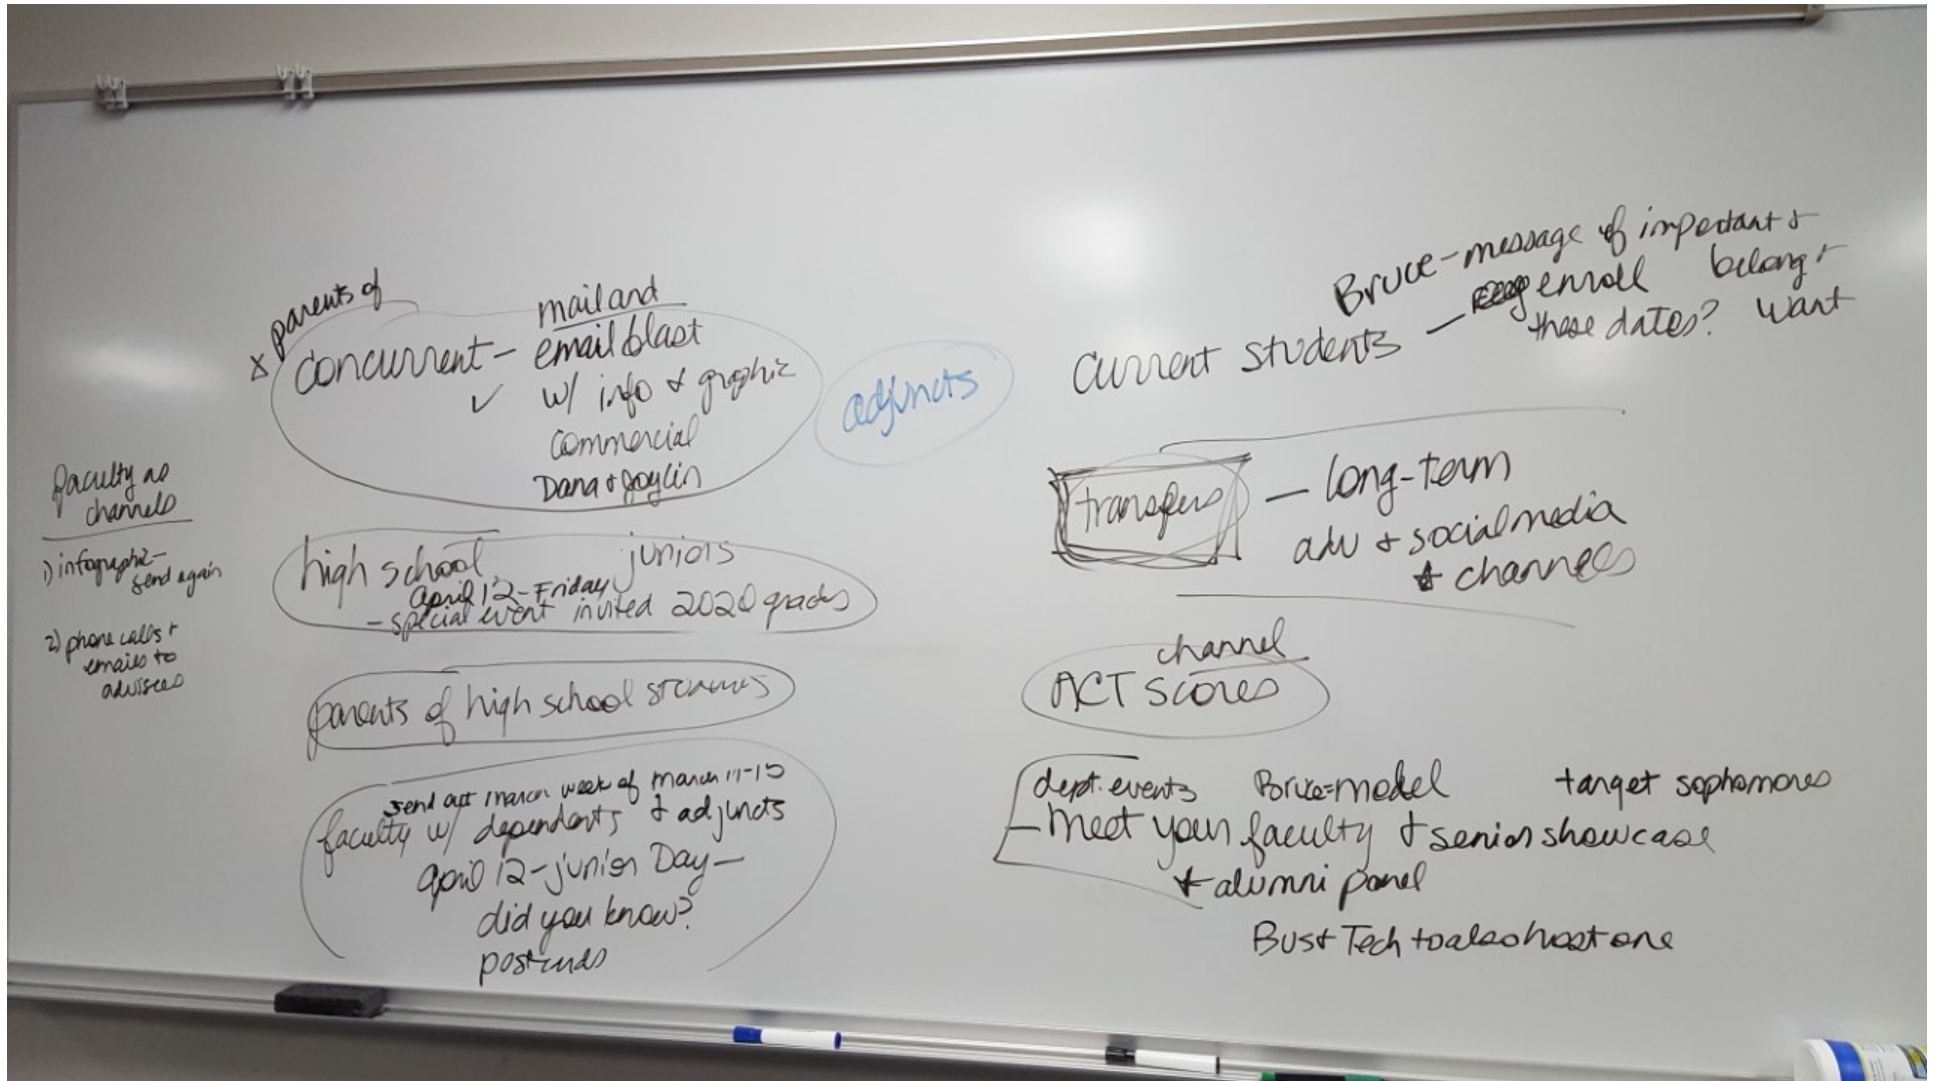 faculty as
channels
1) infographic -
send again
2) phone calls +
emails to
advisees
x parents of
concurrent -
✓
mail and
email blast
w/ info & graphic
commercial
Dana & Joylin
high school juniors
april 12 - Friday
- special event invited 2020 grads
parents of high school students
send out march week of march 11-15
faculty w/ dependents & adjuncts
april 12 - junior Day -
did you know?
postcards
adjuncts
Bruce - message of important &
belong +
want
current students - enroll
these dates?
transfers - long-term
adv & social media
& channels
channel
ACT scores
dept. events Bruce = model target sophomores
- Meet your faculty & senior showcase
& alumni panel
Bus & Tech to also host one